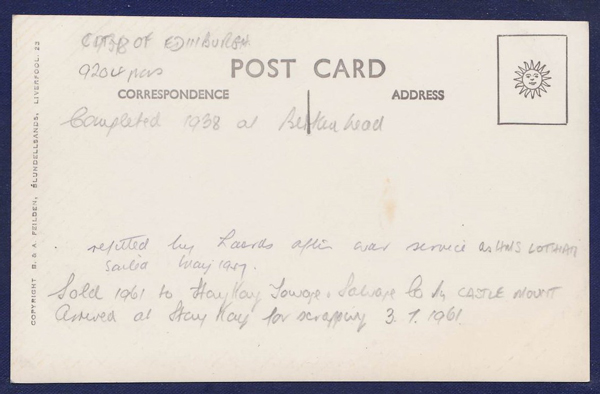 CITY OF EDINBURGH
POST CARD
CORRESPONDENCE
ADDRESS
Completed 1938 at Birkenhead
refitted by Lairds after war service as HMS LOTHIAN
Sailed May 1947.
Sold 1961 to Hong Kong Towage & Salvage Co CASTLE MOUNT
Arrived at Hong Kong for scrapping 3.7.1961
COPYRIGHT B. & A. FEILDEN, BLUNDELLSANDS, LIVERPOOL, 23